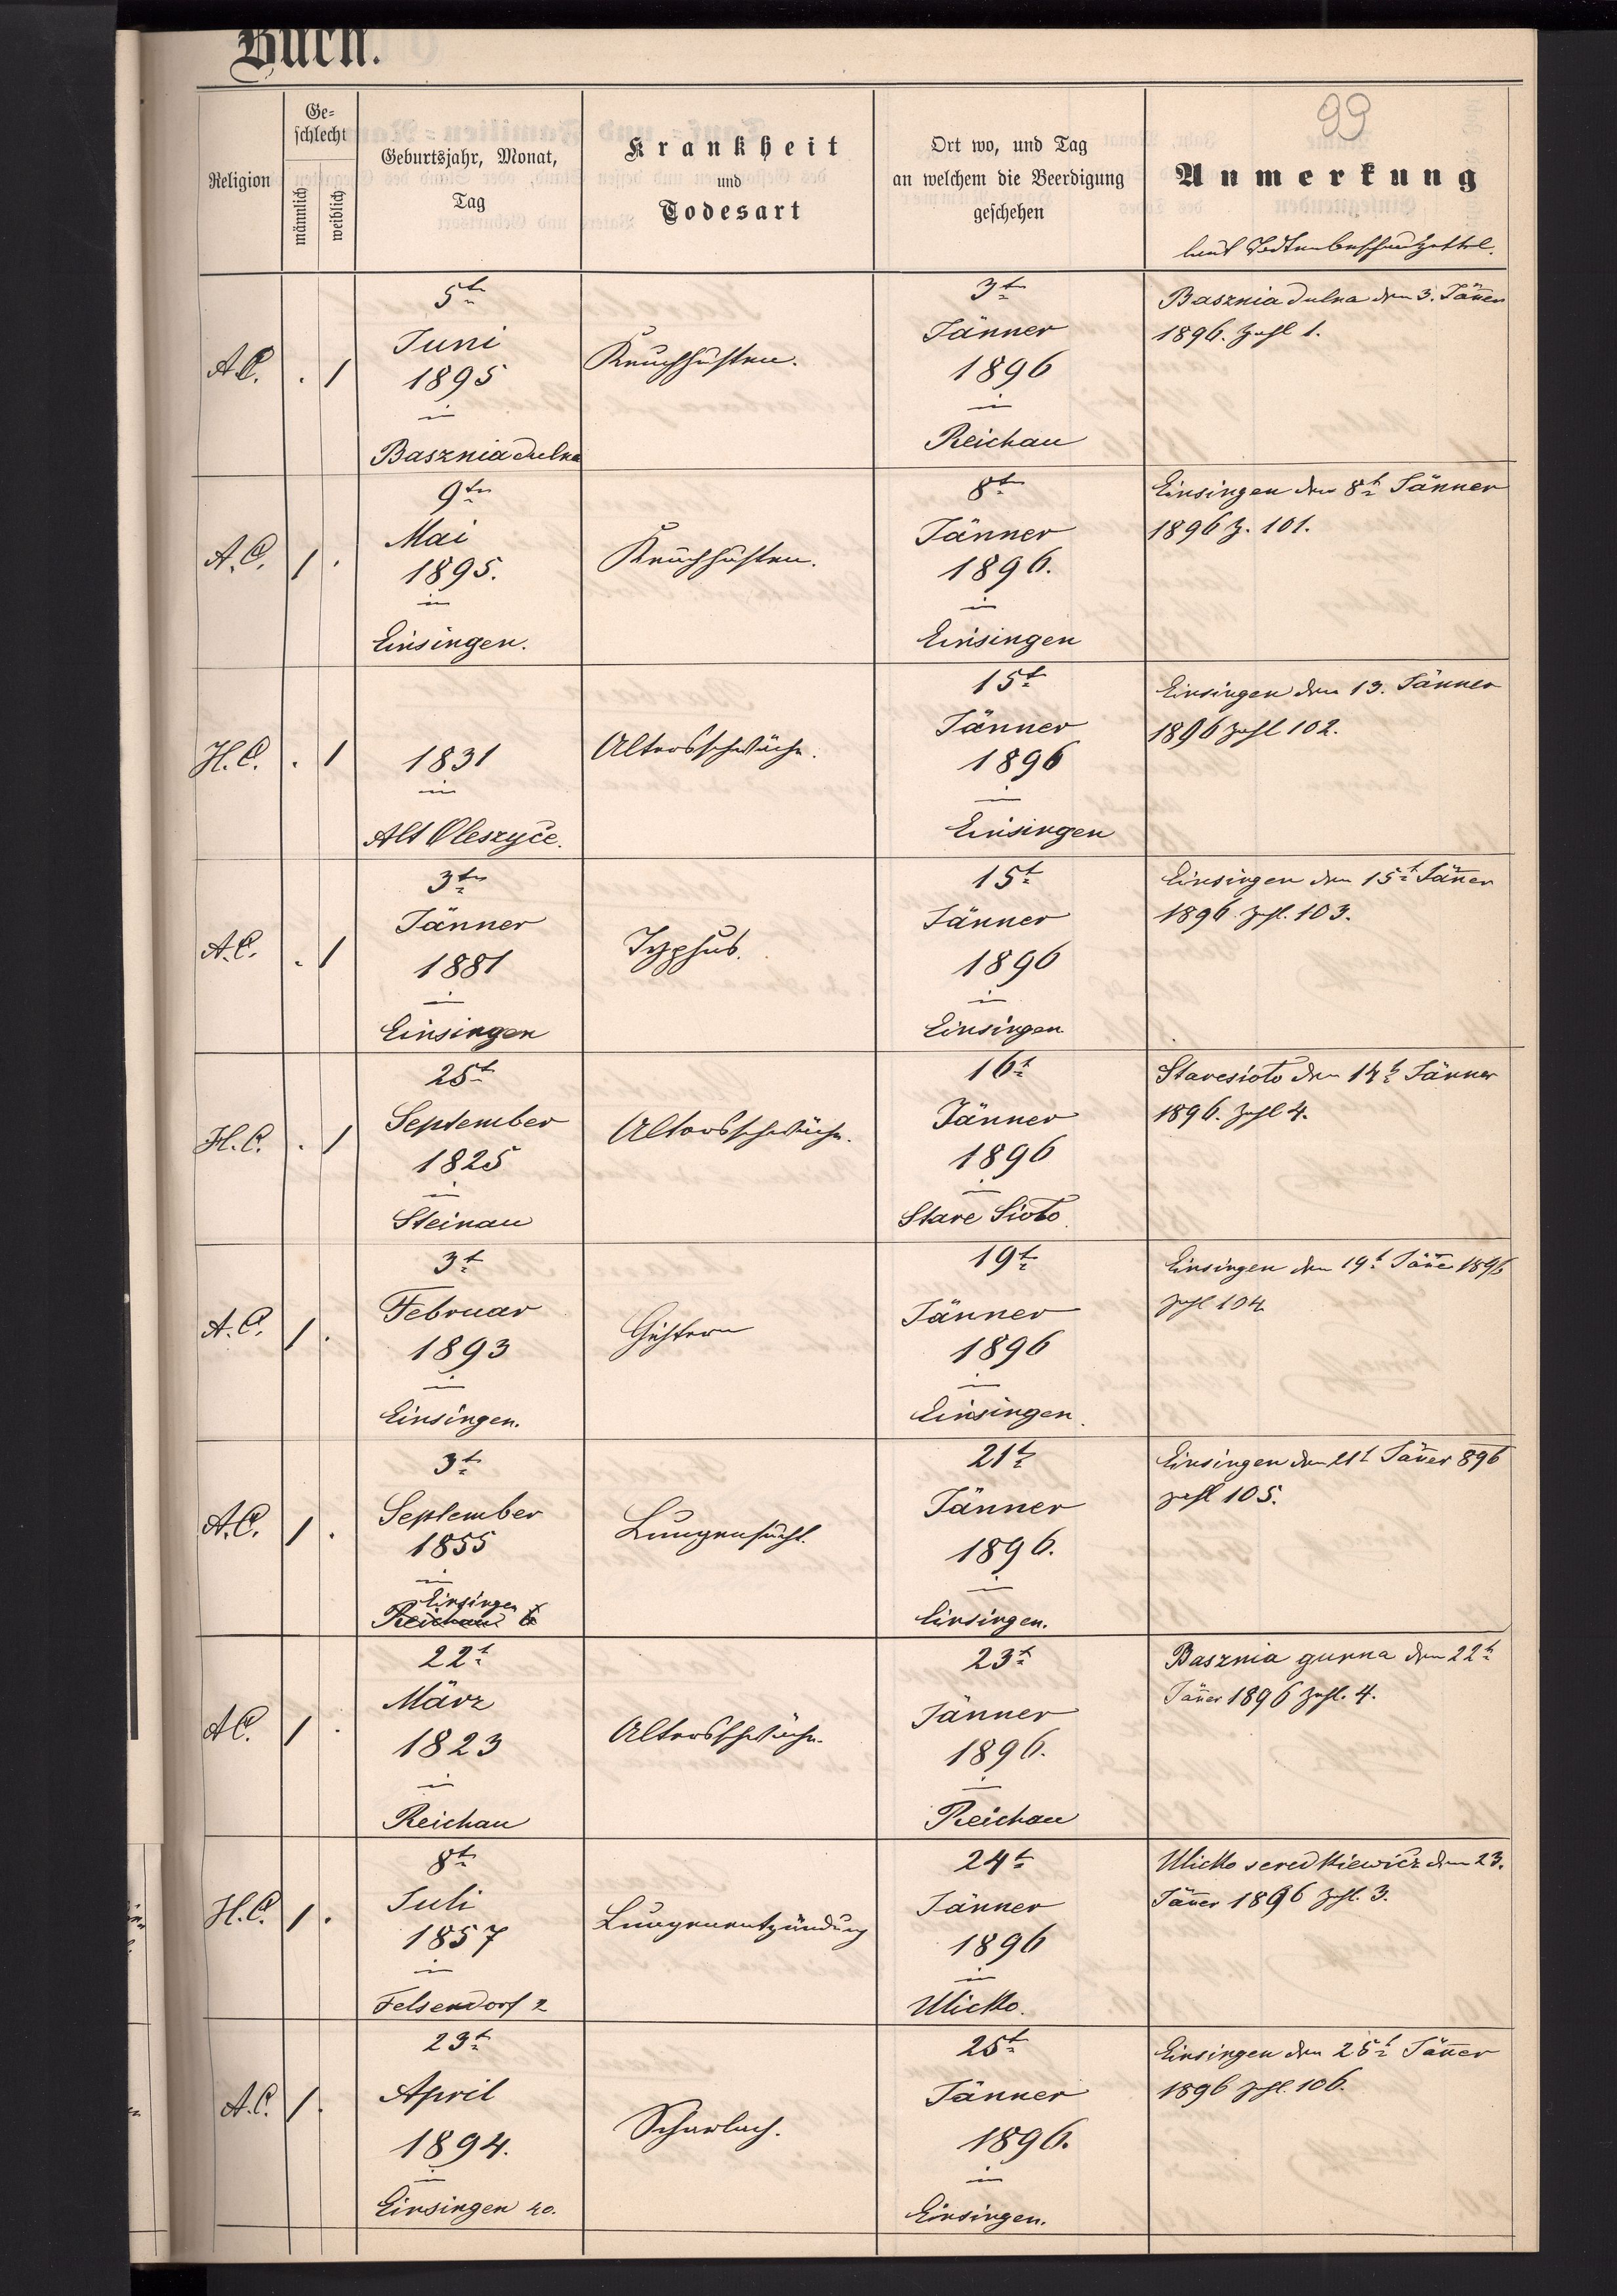 Buch.
99
Religion
Ge-
schlecht
männlich
weiblich
Geburtsjahr, Monat,
Tag
Krankheit
und
Todesart
Ort wo, und Tag
an welchem die Beerdigung
geschehen
Anmerkung
laut Todtenbeschauzettel.
A.C.
. /
5t
Juni
1895
in
Basznia dulna
Keuchhusten.
3t
Jänner
1896
in
Reichau
Basznia dulna den 3. Jäner
1896. Zahl 1.
A.C.
/ .
9tn
Mai
1895.
in
Einsingen.
Keuchhusten.
8t
Jänner
1896.
in
Einsingen
Einsingen den 8t Jänner
1896 Z. 101.
H.C.
. /
1831
in
Alt Oleszyce.
Altersschwäche.
15t
Jänner
1896
in
Einsingen
Einsingen den 13. Jänner
1896 Zahl 102.
A.C.
. /
3tn
Jänner
1881
in
Einsingen
Typhus.
15t
Jänner
1896
in
Einsingen
Einsingen den 15t Jäner
1896 Zhl. 103.
H.C.
. /
25t
September
1825
in
Steinau
Altersschwäche.
16t
Jänner
1896
in
Stare Sioło.
Staresioło den 14t Jänner
1896. Zahl 4.
A.C.
/ .
3t
Februar
1893
in
Einsingen.
19t
Jänner
1896
in
Einsingen.
Einsingen den 19t Jäne 1896
Zhl 104
A.C.
/ .
3t
September
1855
in
Einsingen
Reichau
Lungensucht.
21t
Jänner
1896.
in
Einsingen.
Einsingen den 21t Jäner 896
Zahl 105.
A.C.
/ .
22t
März
1823
in
Reichau
Altersschwäche.
23t
Jänner
1896.
in
Reichau
Basznia gurna den 22t
Jäner 1896 Zahl. 4.
H.C.
/ .
8t
Juli
1857
in
Felsendorf 2
Lungenentzündung
24t
Jänner
1896
in
Ulicko.
Ulicko seredkiewicz den 23.
Jäner 1896 Zhl. 3.
A.C.
/ .
23t
April
1894.
in
Einsingen 40.
Scharlach.
25t
Jänner
1896.
in
Einsingen.
Einsingen den 25t Jäner
1896 Zhl. 106.